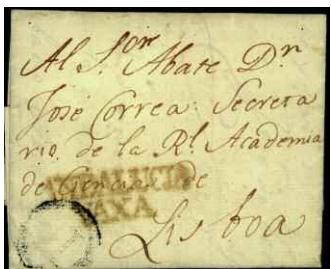 Al S.or Abate Dn
José Correa: Secreta
rio de la Rl. Academia
de Ciencias de
ANDALUCIA
BAXA
Lisboa